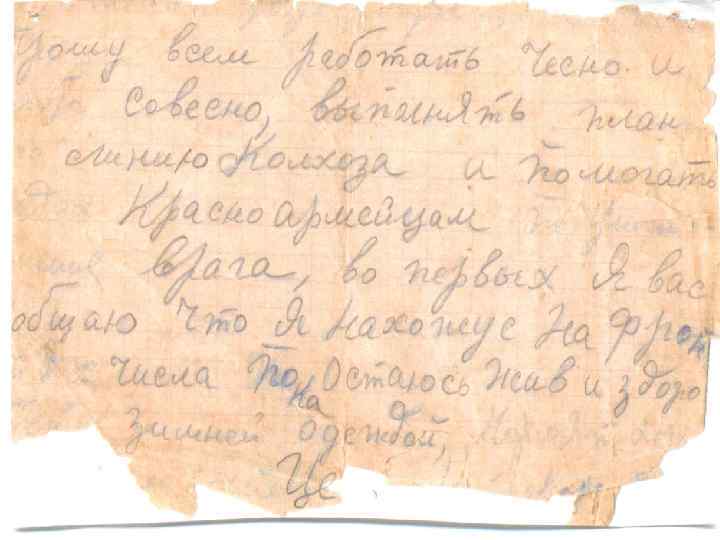 Прошу всем работать чесно и
совесно, выпалнять план
линию Колхоза и помогать
Красноармейцам
врага, во первых я вас
общаю что я нахожус на фрон
числа пока Остаюсь жив и здоро
зимней одеждой,
Це